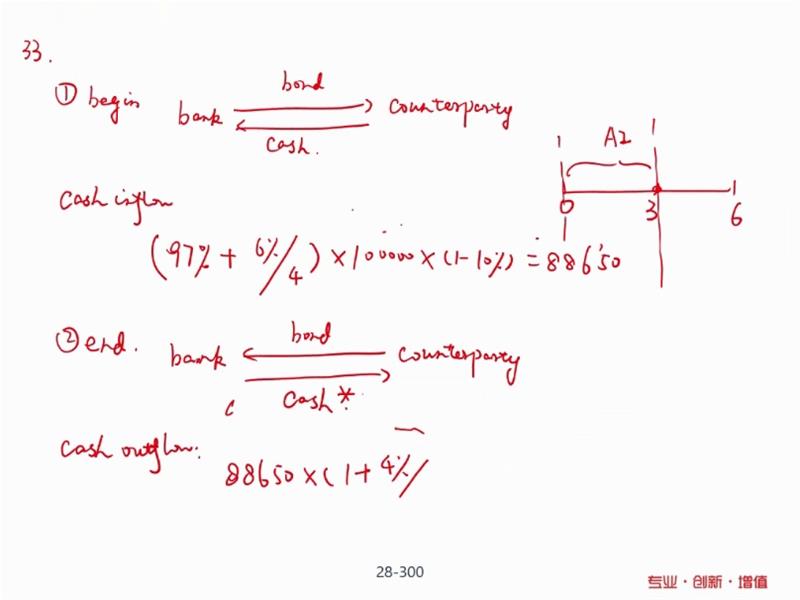 33.
① begin
bond
bank
counterparty
cash.
A2
0 3 6
cash inflow
(97% + 6%/4) × 100000 × (1-10%) = 88650
② end.
bond
bank
counterparty
cash *
cash outflow:
88650 × (1 + 4%/
28-300
专业·创新·增值